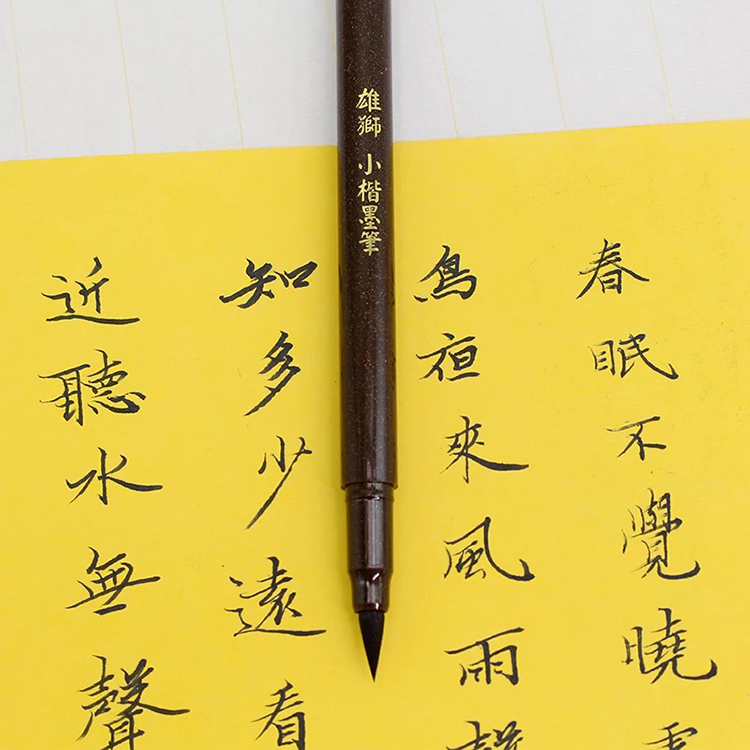 雄獅 小楷墨筆
春眠不覺曉
鳥亱來風雨
知多少遠看
近聽水無聲